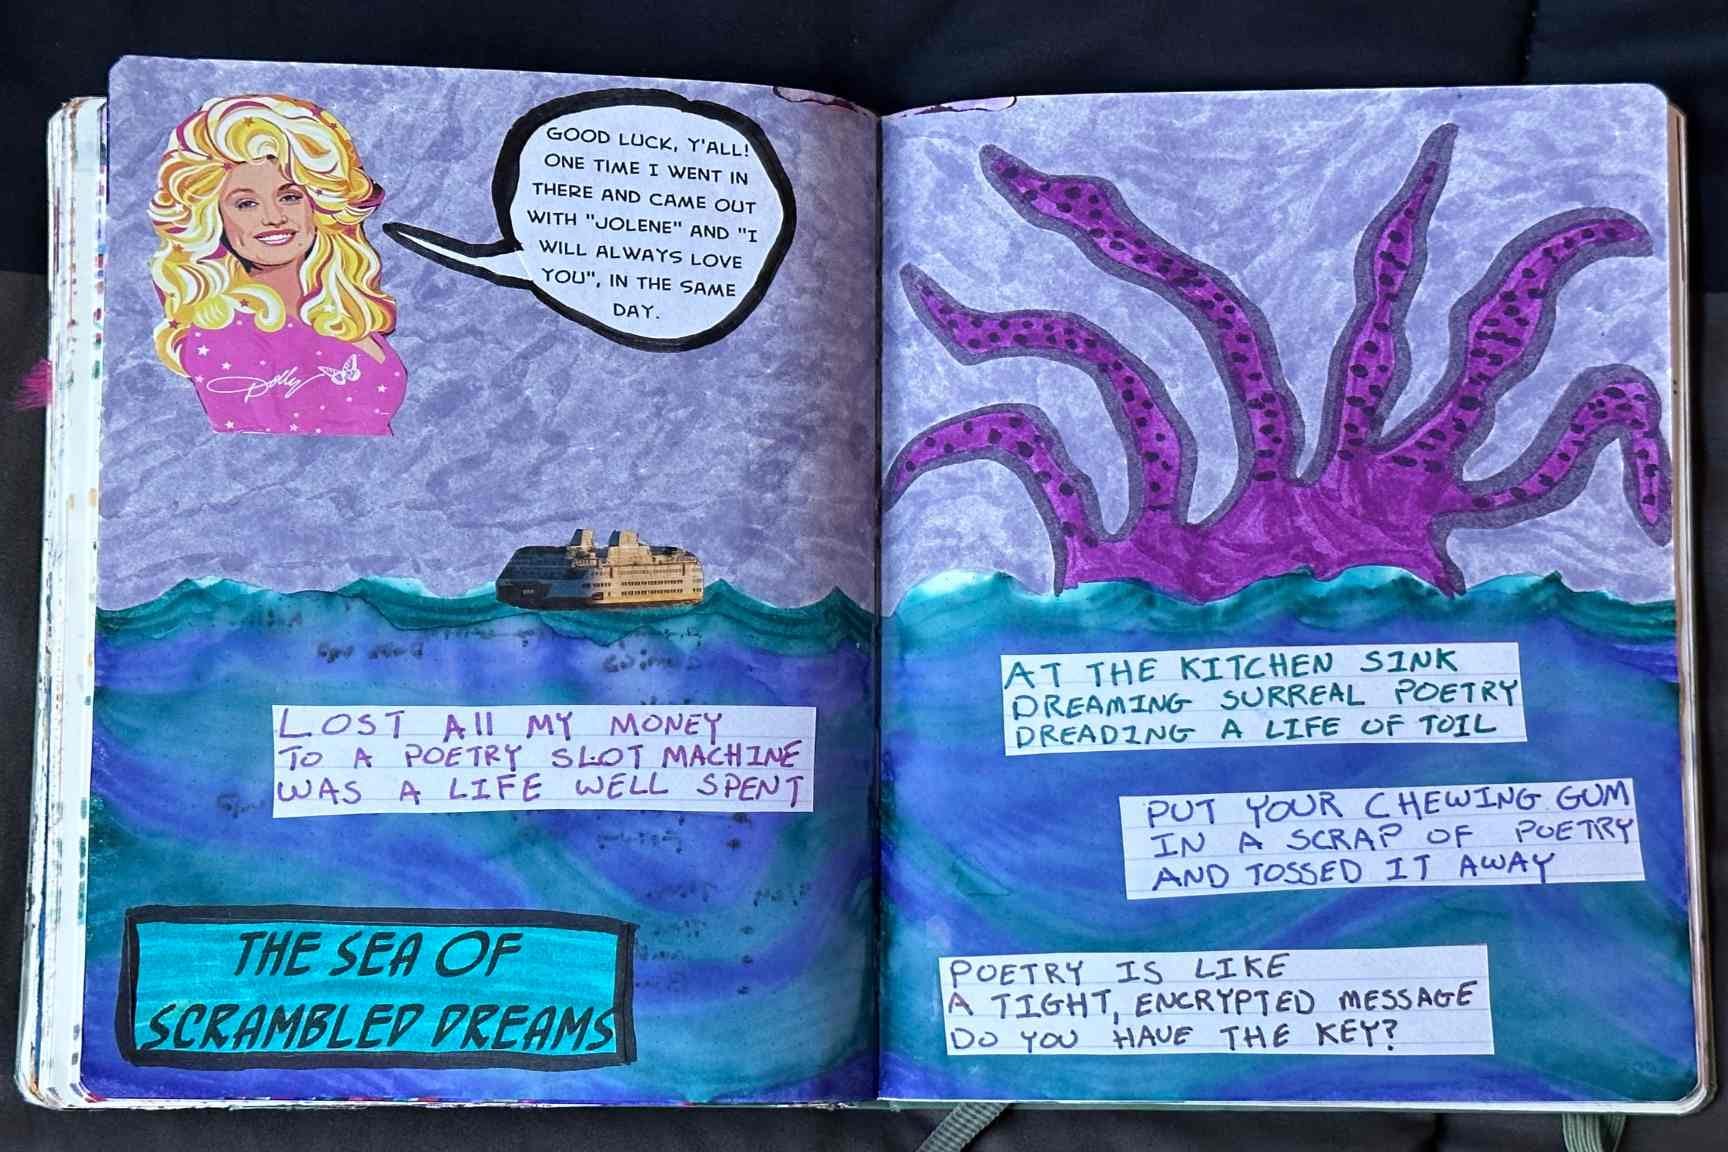 GOOD LUCK, Y'ALL!
ONE TIME I WENT IN
THERE AND CAME OUT
WITH "JOLENE" AND "I
WILL ALWAYS LOVE
YOU", IN THE SAME
DAY.
Dolly
LOST All MY MONEY
TO A POETRY SLOT MACHINE
WAS A LIFE WELL SPENT
THE SEA OF
SCRAMBLED DREAMS
AT THE KITCHEN SINK
DREAMING SURREAL POETRY
DREADING A LIFE OF TOIL
PUT YOUR CHEWING GUM
IN A SCRAP OF POETRY
AND TOSSED IT AWAY
POETRY IS LIKE
A TIGHT, ENCRYPTED MESSAGE
DO YOU HAVE THE KEY?